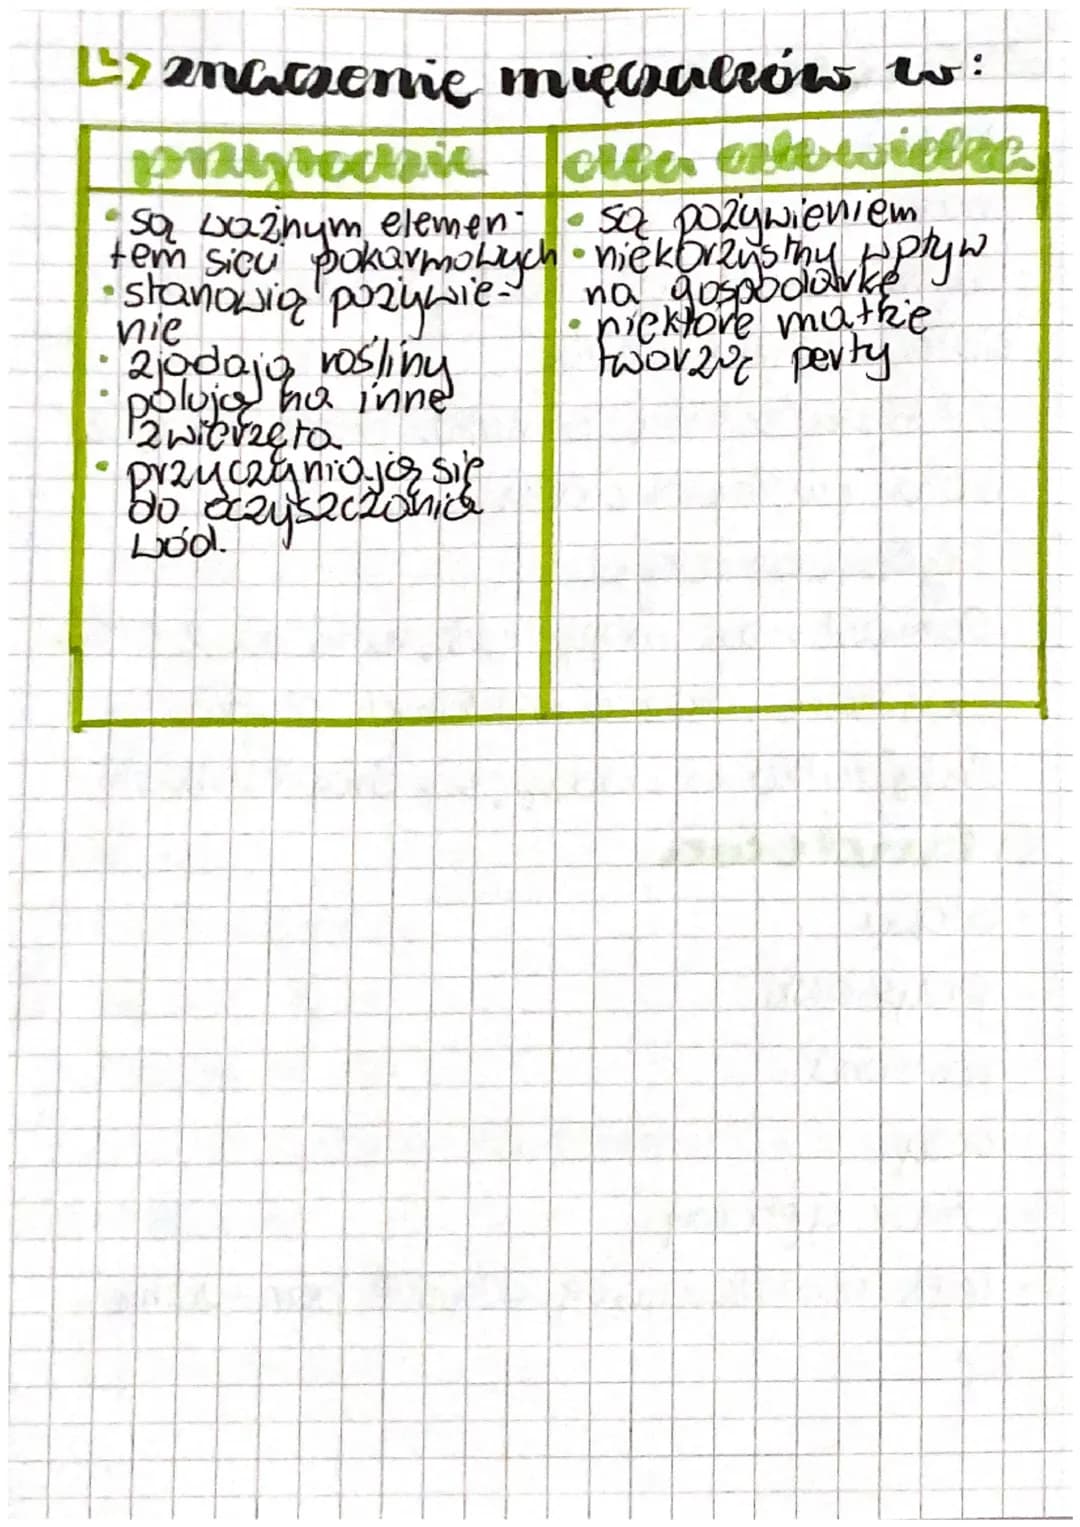 znaczenie mięczaków w:
przyrodzie
są ważnym elemen-
tem sieci pokarmowych
stanowią pożywie-
nie
zjadają rośliny
polują na inne
zwierzęta
przyczyniają się
do oczyszczania
wód.
dla człowieka
są pożywieniem
niekorzystny wpływ
na gospodarkę
niektóre małże
tworzą perły